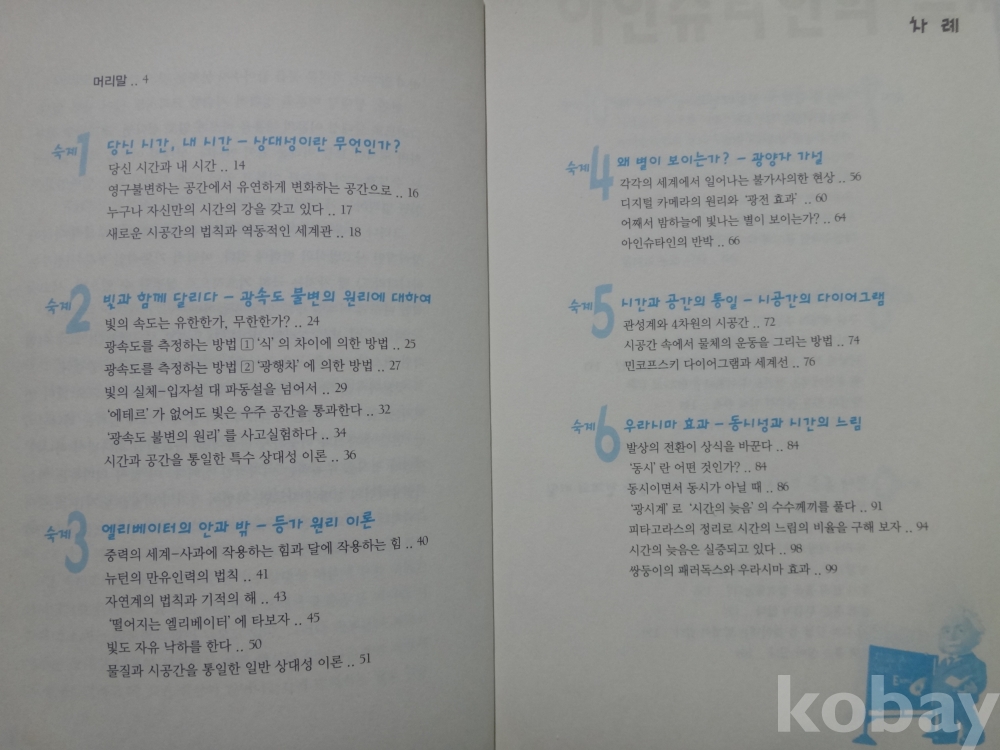 머리말 .. 4
숙제 1 당신 시간, 내 시간 – 상대성이란 무엇인가?
당신 시간과 내 시간 .. 14
영구불변하는 공간에서 유연하게 변화하는 공간으로 .. 16
누구나 자신만의 시간의 강을 갖고 있다 .. 17
새로운 시공간의 법칙과 역동적인 세계관 .. 18
숙제 2 빛과 함께 달리다 – 광속도 불변의 원리에 대하여
빛의 속도는 유한한가, 무한한가? .. 24
광속도를 측정하는 방법 1 '식'의 차이에 의한 방법 .. 25
광속도를 측정하는 방법 2 '광행차'에 의한 방법 .. 27
빛의 실체–입자설 대 파동설을 넘어서 .. 29
'에테르'가 없어도 빛은 우주 공간을 통과한다 .. 32
'광속도 불변의 원리'를 사고실험하다 .. 34
시간과 공간을 통일한 특수 상대성 이론 .. 36
숙제 3 엘리베이터의 안과 밖 – 등가 원리 이론
중력의 세계–사과에 작용하는 힘과 달에 작용하는 힘 .. 40
뉴턴의 만유인력의 법칙 .. 41
자연계의 법칙과 기적의 해 .. 43
'떨어지는 엘리베이터'에 타보자 .. 45
빛도 자유 낙하를 한다 .. 50
물질과 시공간을 통일한 일반 상대성 이론 .. 51
차례
숙제 4 왜 별이 보이는가? – 광양자 가설
각각의 세계에서 일어나는 불가사의한 현상 .. 56
디지털 카메라의 원리와 '광전 효과' .. 60
어째서 밤하늘에 빛나는 별이 보이는가? .. 64
아인슈타인의 반박 .. 66
숙제 5 시간과 공간의 통일 – 시공간의 다이어그램
관성계와 4차원의 시공간 .. 72
시공간 속에서 물체의 운동을 그리는 방법 .. 74
민코프스키 다이어그램과 세계선 .. 76
숙제 6 우라시마 효과 – 동시성과 시간의 느림
발상의 전환이 상식을 바꾼다 .. 84
'동시'란 어떤 것인가? .. 84
동시이면서 동시가 아닐 때 .. 86
'광시계'로 '시간의 늦음'의 수수께끼를 풀다 .. 91
피타고라스의 정리로 시간의 느림의 비율을 구해 보자 .. 94
시간의 늦음은 실증되고 있다 .. 98
쌍둥이의 패러독스와 우라시마 효과 .. 99
kobay